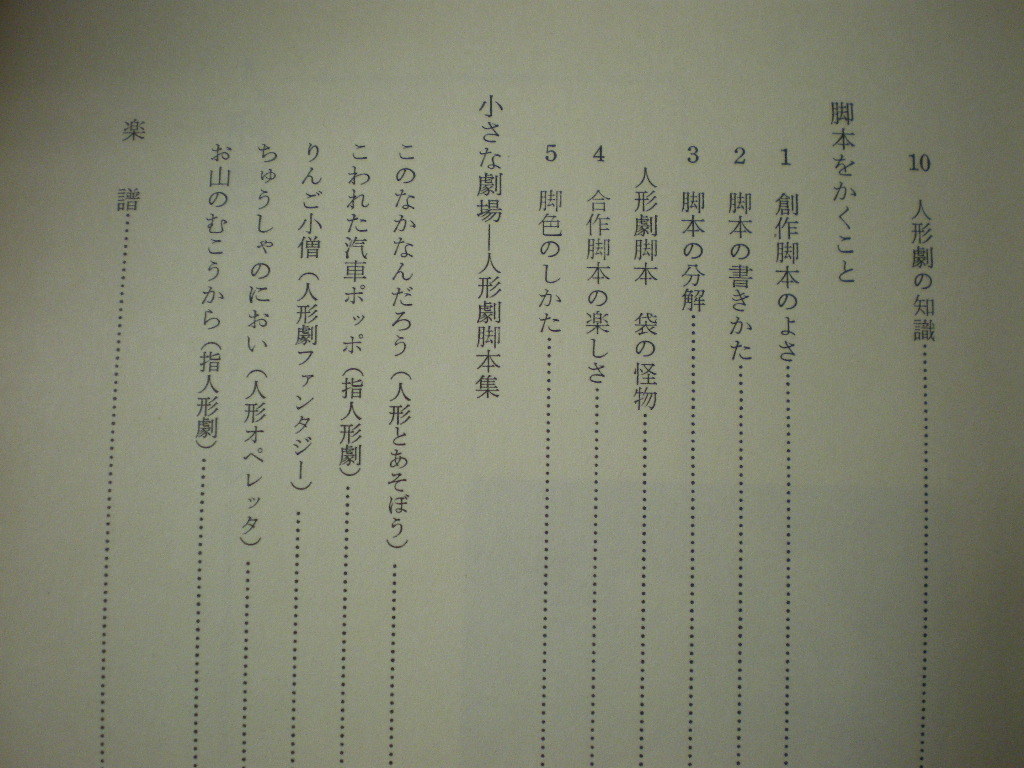 10 人形劇の知識……………………
脚本をかくこと
1 創作脚本のよさ……………………
2 脚本の書きかた……………………
3 脚本の分解……………………
人形劇脚本 袋の怪物……………………
4 合作脚本の楽しさ……………………
5 脚色のしかた……………………
小さな劇場―人形劇脚本集
このなかなんだろう（人形とあそぼう）……………………
こわれた汽車ポッポ（指人形劇）……………………
りんご小僧（人形劇ファンタジー）……………………
ちゅうしゃのにおい（人形オペレッタ）……………………
お山のむこうから（指人形劇）……………………
楽 譜……………………